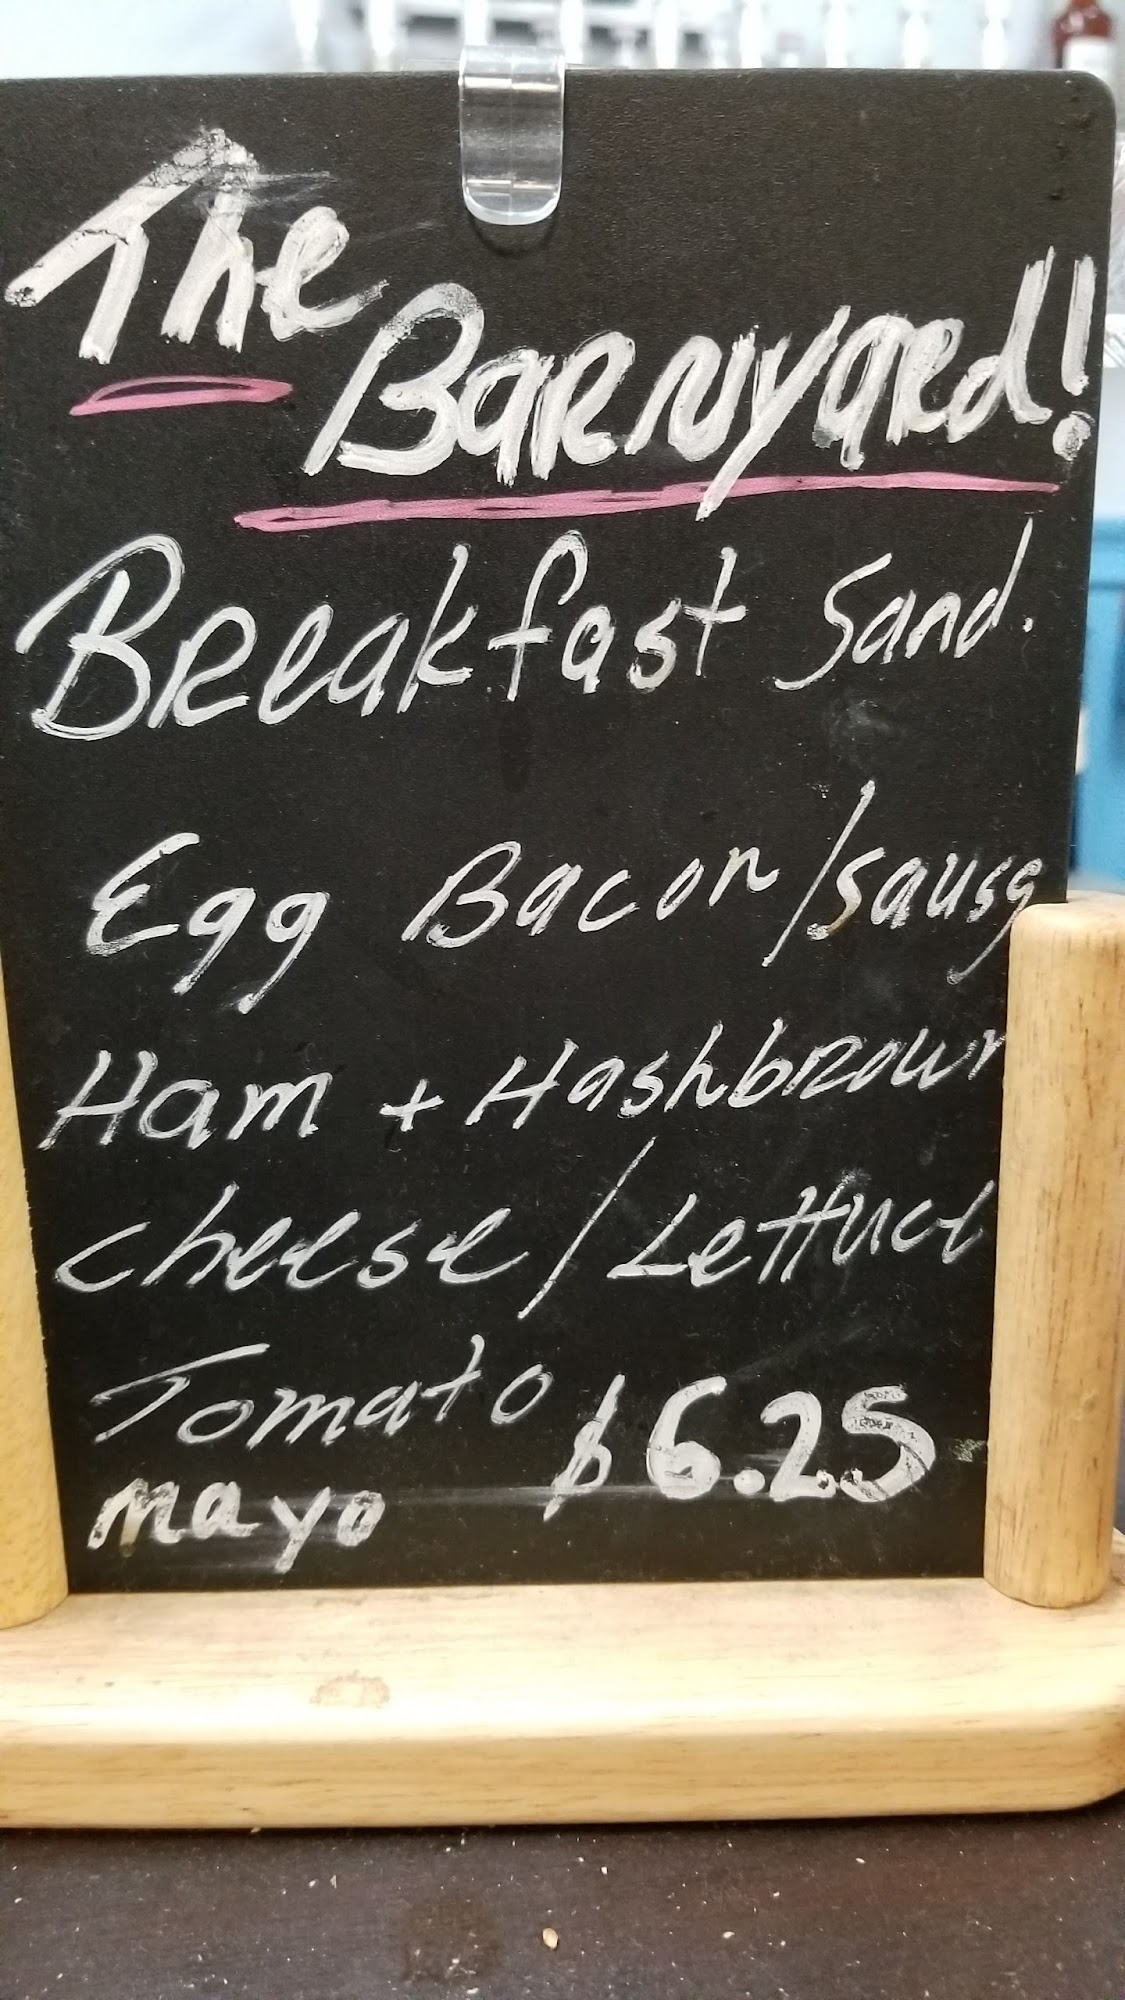 The
Barnyard!
Breakfast Sand.
Egg Bacon/sausg
Ham + Hashbrown
cheese/Lettuce
Tomato $6.25
mayo